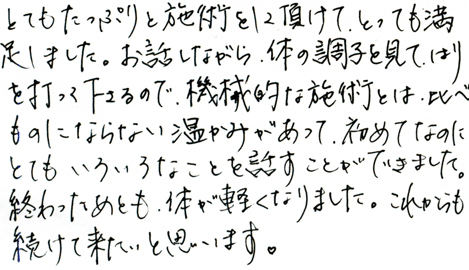 とてもたっぷりと施術をして頂けて、とっても満
足しました。お話しながら、体の調子を見て、はり
を打って下さるので、機械的な施術とは、比べ
ものにならない温かみがあって、初めてなのに
とてもいろいろなことを話すことができました。
終わったあとも、体が軽くなりました。これからも
続けて来たいと思います。